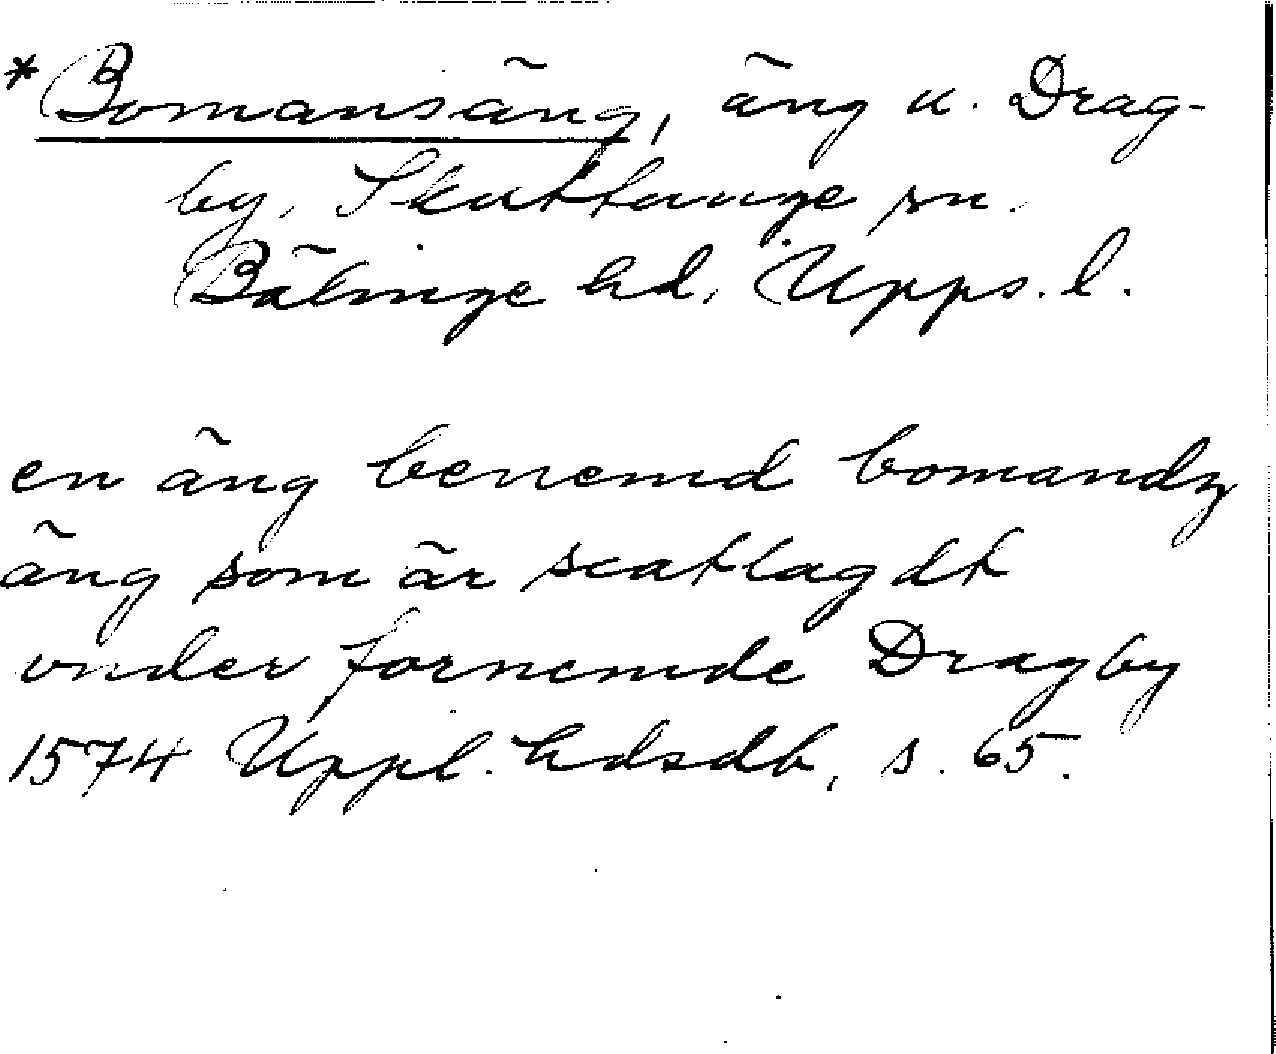 *Bomansäng, äng u. Drag-
by, Skuttunge sn.
Bälinge hd, Upps. l.
en äng benemd bomandz
äng som är scatlagdt
vnder fornemde Dragby
1574 Uppl. hdsdb, s. 65.